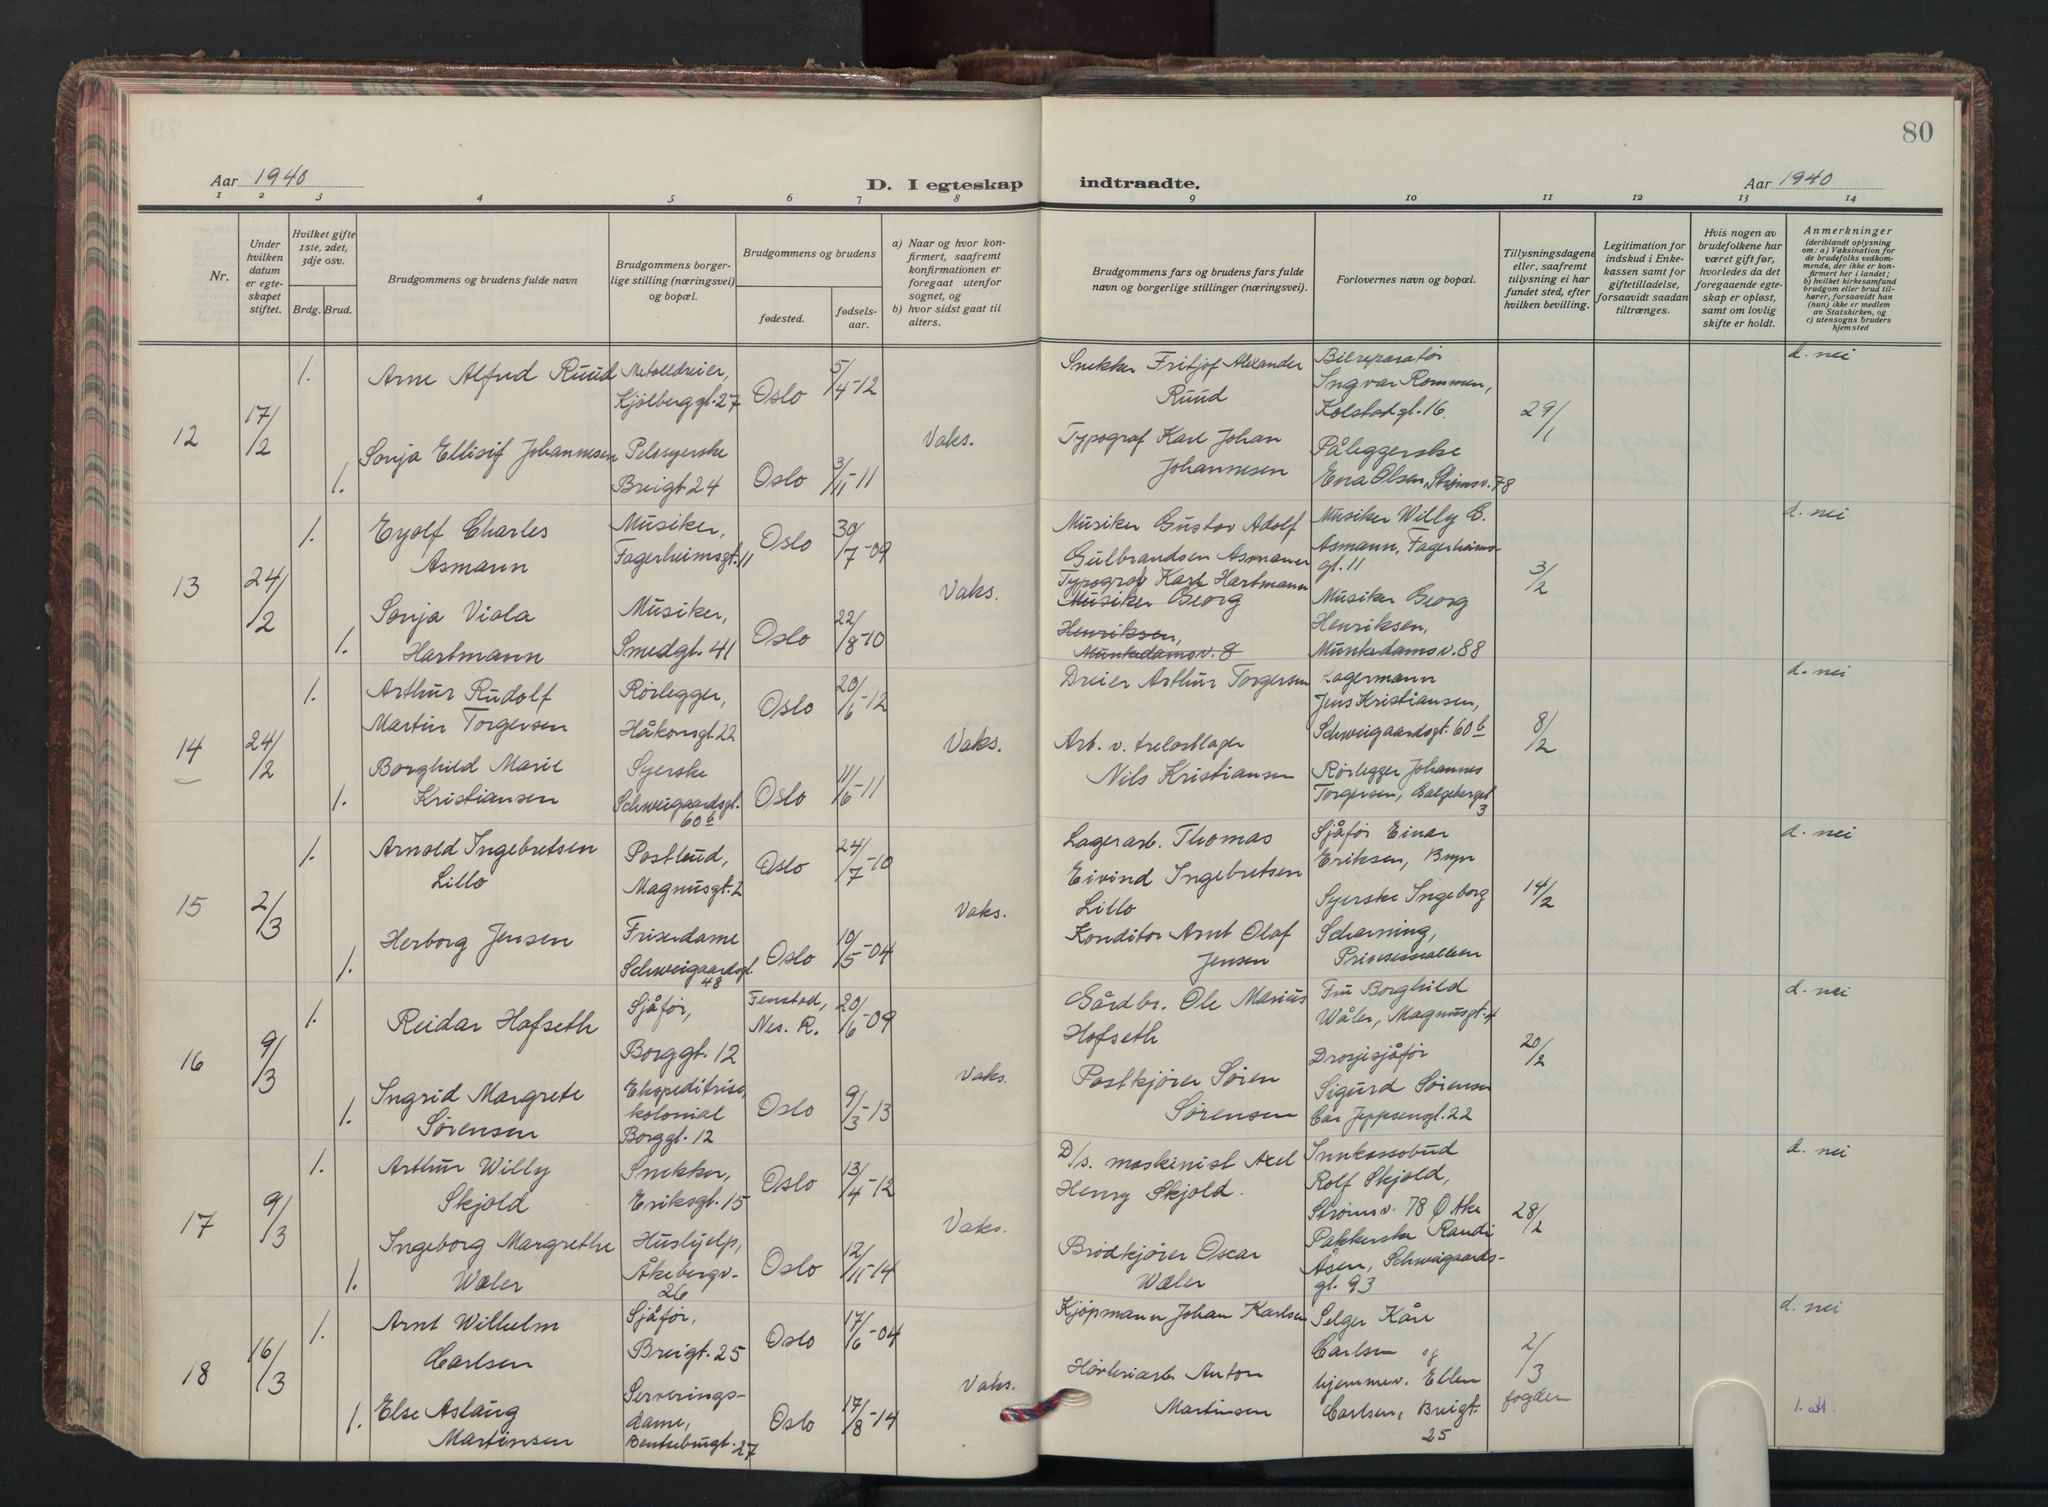 80
Aar 1940
D. I egteskap indtraadte.
Aar 1940
1 2 3 4 5 6 7 8 9 10 11 12 13 14
Nr.
Under hvilken datum er egteskapet stiftet.
Hvilket gifte 1ste, 2det, 3dje osv.
Brdg. Brud.
Brudgommens og brudens fulde navn
Brudgommens borgerlige stilling (næringsvei) og bopæl.
Brudgommens og brudens
fødested.
fødselsaar.
a) Naar og hvor konfirmert, saafremt konfirmationen er foregaat utenfor sognet, og
b) hvor sidst gaat til alters.
Brudgommens fars og brudens fars fulde navn og borgerlige stillinger (næringsvei).
Forlovernes navn og bopæl.
Tillysningsdagene eller, saafremt tillysning ei har fundet sted, efter hvilken bevilling.
Legitimation for indskud i Enkekassen samt for giftetilladelse, forsaavidt saadan tiltrænges.
Hvis nogen av brudefolkene har været gift før, hvorledes da det foregaaende egteskap er opløst, samt om lovlig skifte er holdt.
Anmerkninger
(deriblandt oplysning om: a) Vaksination for de brudefolks vedkommende, der ikke er konfirmert her i landet; b) hvilket kirkesamfund brudgom eller brud tilhører, forsaavidt han (hun) ikke er medlem av Statskirken, og c) utensogns bruders hjemsted
12 17/2
1. Arne Alfred Ruud
Metalldreier, Kjølberggt. 27
Oslo 5/4-12
1. Sonja Ellisif Johannesen
Pelssyerske Breigt. 24
Oslo 3/11-11
Vaks.
Snekker Fritjof Alexander Ruud
Typograf Karl Johan Johannesen
Bilreparatør Ingvar Rommen, Kolstadgt. 16.
Påleggerske Ena Olsen, Strømsv. 78
29/1
d. nei
13 24/2
1. Eyolf Charles Asmann
Musiker, Fagerheimsgt. 11
Oslo 30/7-09
1. Sonja Viola Hartmann
Musiker, Smedgt. 41
Oslo 22/8-10
Vaks.
Musiker Gustav Adolf Gulbrandsen Asmann
Typograf Karl Hartmann
Musiker Georg Henriksen, Munkedamsv. 8
Musiker Willy E. Asmann, Fagerheimsgt. 11
Musiker Georg Henriksen, Munkedamsv. 88
3/2
d. nei
14 24/2
1. Arthur Rudolf Martin Torgersen
Rørlegger, Håkonsgt. 22
Oslo 20/6-12
1. Borghild Marie Kristiansen
Syerske Schweigaardsgt. 60 b
Oslo 11/6-11
Vaks.
Dreier Arthur Torgersen
Arb. v. trelastlager Nils Kristiansen
Lagermann Jens Kristiansen, Schweigaardsgt. 60 b
Rørlegger Johannes Torgersen, Galgeberget 3
8/2
d. nei
15 2/3
1. Arnold Ingebretsen Lillo
Postbud, Magnusgt. 2
Oslo 24/7-10
1. Herborg Jensen
Friserdame Schweigaardsgt. 48
Oslo 10/5-04
Vaks.
Lagerarb. Thomas Eivind Ingebretsen Lillo
Konditor Arnt Olaf Jensen
Sjåfør Einar Eriksen, Bryn
Syerske Ingeborg Scharning, Prinsessealleen
14/2
d. nei
16 9/3
1. Reidar Hofseth
Sjåfør, Borggt. 12
Fenstad, Nes. R. 20/6-09
1. Ingrid Margrete Sørensen
Ekspeditrise, kolonial Borggt. 12
Oslo 9/3-13
Vaks.
Gårdbr. Ole Marius Hofseth
Postkjører Søren Sørensen
Fru Borghild Wåler, Magnusgt. 4
Drosjesjåfør Sigurd Sørensen Car Jeppsensgt. 22
20/2
d. nei
17 9/3
1. Arthur Willy Skjold
Snekker, Eriksgt. 15
Oslo 13/4-12
1. Ingeborg Margrethe Wæler
Hushjelp, Åkebergv. 26
Oslo 12/11-14
Vaks.
D/s. maskinist Axel Henry Skjold.
Brødkjører Oscar Wæler
Innkassobud Rolf Skjold, Strømsv. 78 Ø Aker
Pakkerske Randi Åsen, Schweigaardsgt. 93
28/2
d. nei
18 16/3
1. Arnt Wilhelm Carlsen
Sjåfør, Breigt. 25
Oslo 17/6-04
1. Else Aslaug Martinsen
Serveringsdame, Bentsebrugt. 27
Oslo 17/8-14
Vaks.
Kjøpmann Johan Karlsen
Høvleriarb. Anton Martinsen
Selger Kåre Carlsen og
hjemmev. Ellen Carlsen, Breigt. 25
2/3 fogden
d. nei
1. att.